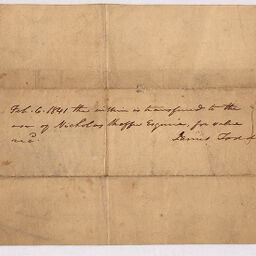 Feb. 6. 1841 the within is transfered to the
use of Nicholas Shaffer Esquire, for value
recd.
James Todd